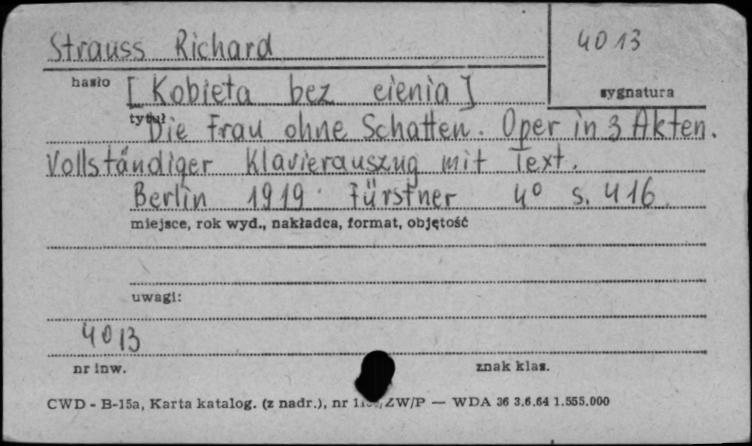 Strauss Richard
4013
hasło
[Kobieta bez cienia]
sygnatura
tytuł
Die Frau ohne Schatten. Oper in 3 Akten.
Vollständiger Klavierauszug mit Text.
Berlin 1919 Fürstner 4° s. 416
miejsce, rok wyd., nakładca, format, objętość
uwagi:
4013
nr inw.
znak klas.
CWD - B-15a, Karta katalog. (z nadr.), nr ZW/P — WDA 36 3.6.64 1.555.000